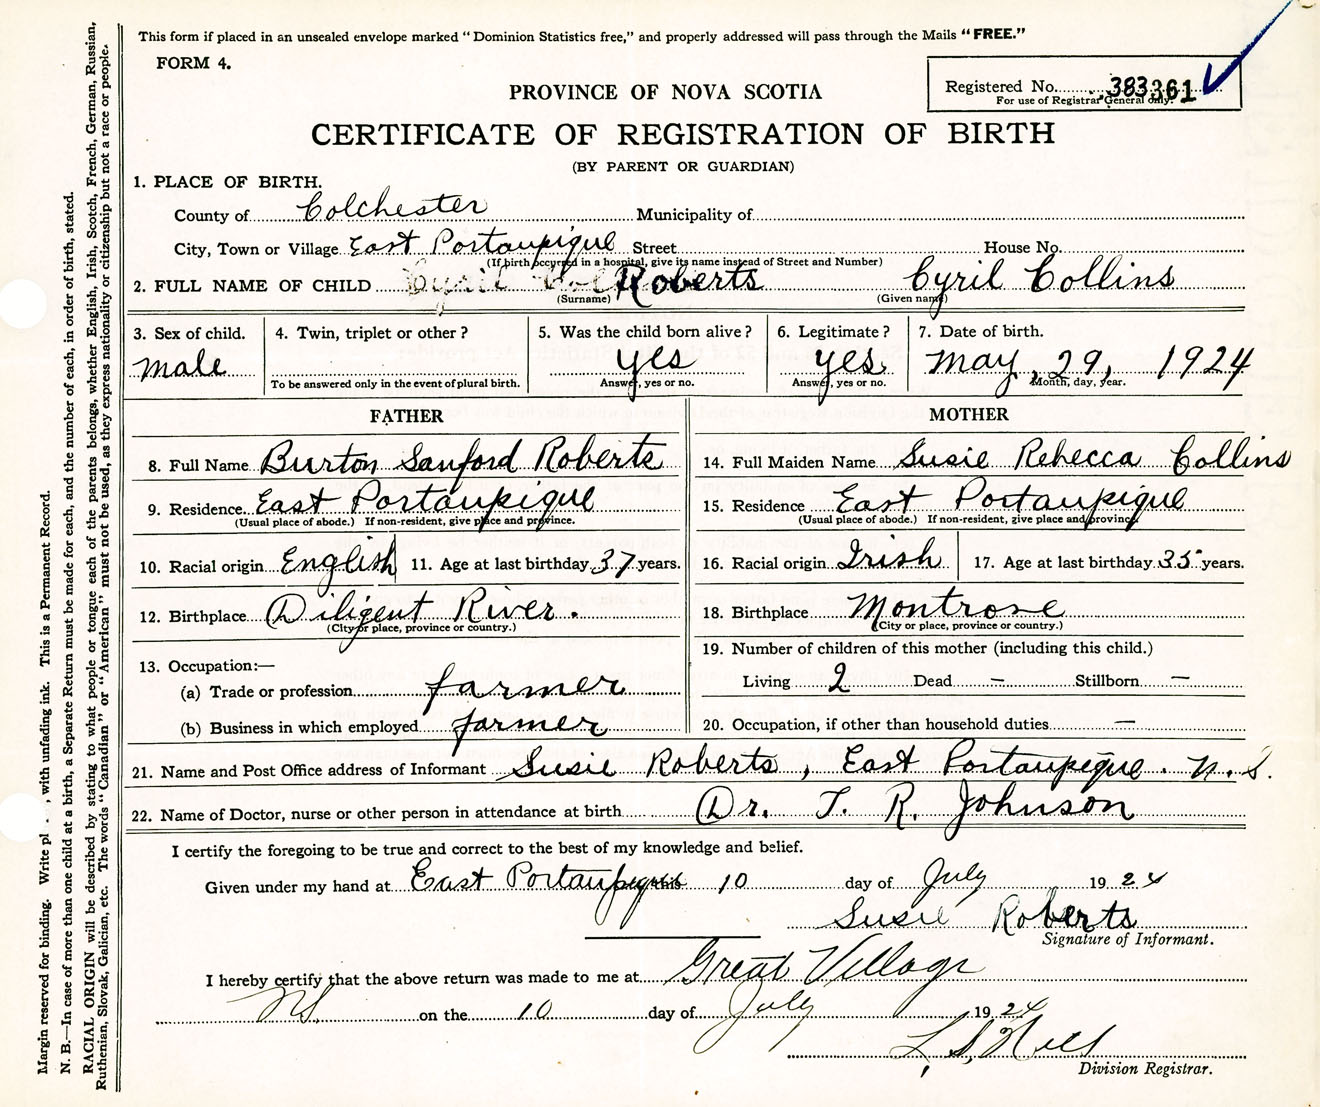 This form if placed in an unsealed envelope marked "Dominion Statistics free," and properly addressed will pass through the Mails "FREE."
FORM 4.
Registered No. 383361
For use of Registrar General only.
PROVINCE OF NOVA SCOTIA
CERTIFICATE OF REGISTRATION OF BIRTH
(BY PARENT OR GUARDIAN)
1. PLACE OF BIRTH.
County of Colchester Municipality of
City, Town or Village East Portaupique Street House No.
(If birth occurred in a hospital, give its name instead of Street and Number)
2. FULL NAME OF CHILD Cyril Roberts Cyril Collins
(Surname) (Given name)
3. Sex of child. 4. Twin, triplet or other? 5. Was the child born alive? 6. Legitimate? 7. Date of birth.
male yes yes May, 29, 1924
To be answered only in the event of plural birth. Answer, yes or no. Answer, yes or no. Month, day, year.
FATHER
8. Full Name Burton Sanford Roberts
9. Residence East Portaupique
(Usual place of abode.) If non-resident, give place and province.
10. Racial origin English 11. Age at last birthday 37 years.
12. Birthplace Diligent River.
(City or place, province or country.)
13. Occupation:—
(a) Trade or profession farmer
(b) Business in which employed farmer
MOTHER
14. Full Maiden Name Susie Rebecca Collins
15. Residence East Portaupique
(Usual place of abode.) If non-resident, give place and province.
16. Racial origin Irish 17. Age at last birthday 35 years.
18. Birthplace Montrose
(City or place, province or country.)
19. Number of children of this mother (including this child.)
Living 2 Dead — Stillborn —
20. Occupation, if other than household duties —
21. Name and Post Office address of Informant Susie Roberts, East Portaupique. N.S.
22. Name of Doctor, nurse or other person in attendance at birth Dr. T. R. Johnson
I certify the foregoing to be true and correct to the best of my knowledge and belief.
Given under my hand at East Portaupique this 10 day of July 1924
Susie Roberts
Signature of Informant.
I hereby certify that the above return was made to me at Great Village
NS. on the 10 day of July 1924
L. S. Hill
Division Registrar.
Margin reserved for binding. Write pl , with unfading ink. This is a Permanent Record.
N. B.—In case of more than one child at a birth, a Separate Return must be made for each, and the number of each, in order of birth, stated.
RACIAL ORIGIN will be described by stating to what people or tongue each of the parents belongs, whether English, Irish, Scotch, French, German, Russian,
Ruthenian, Slovak, Galician, etc. The words "Canadian" or "American" must not be used, as they express nationality or citizenship but not a race or people.